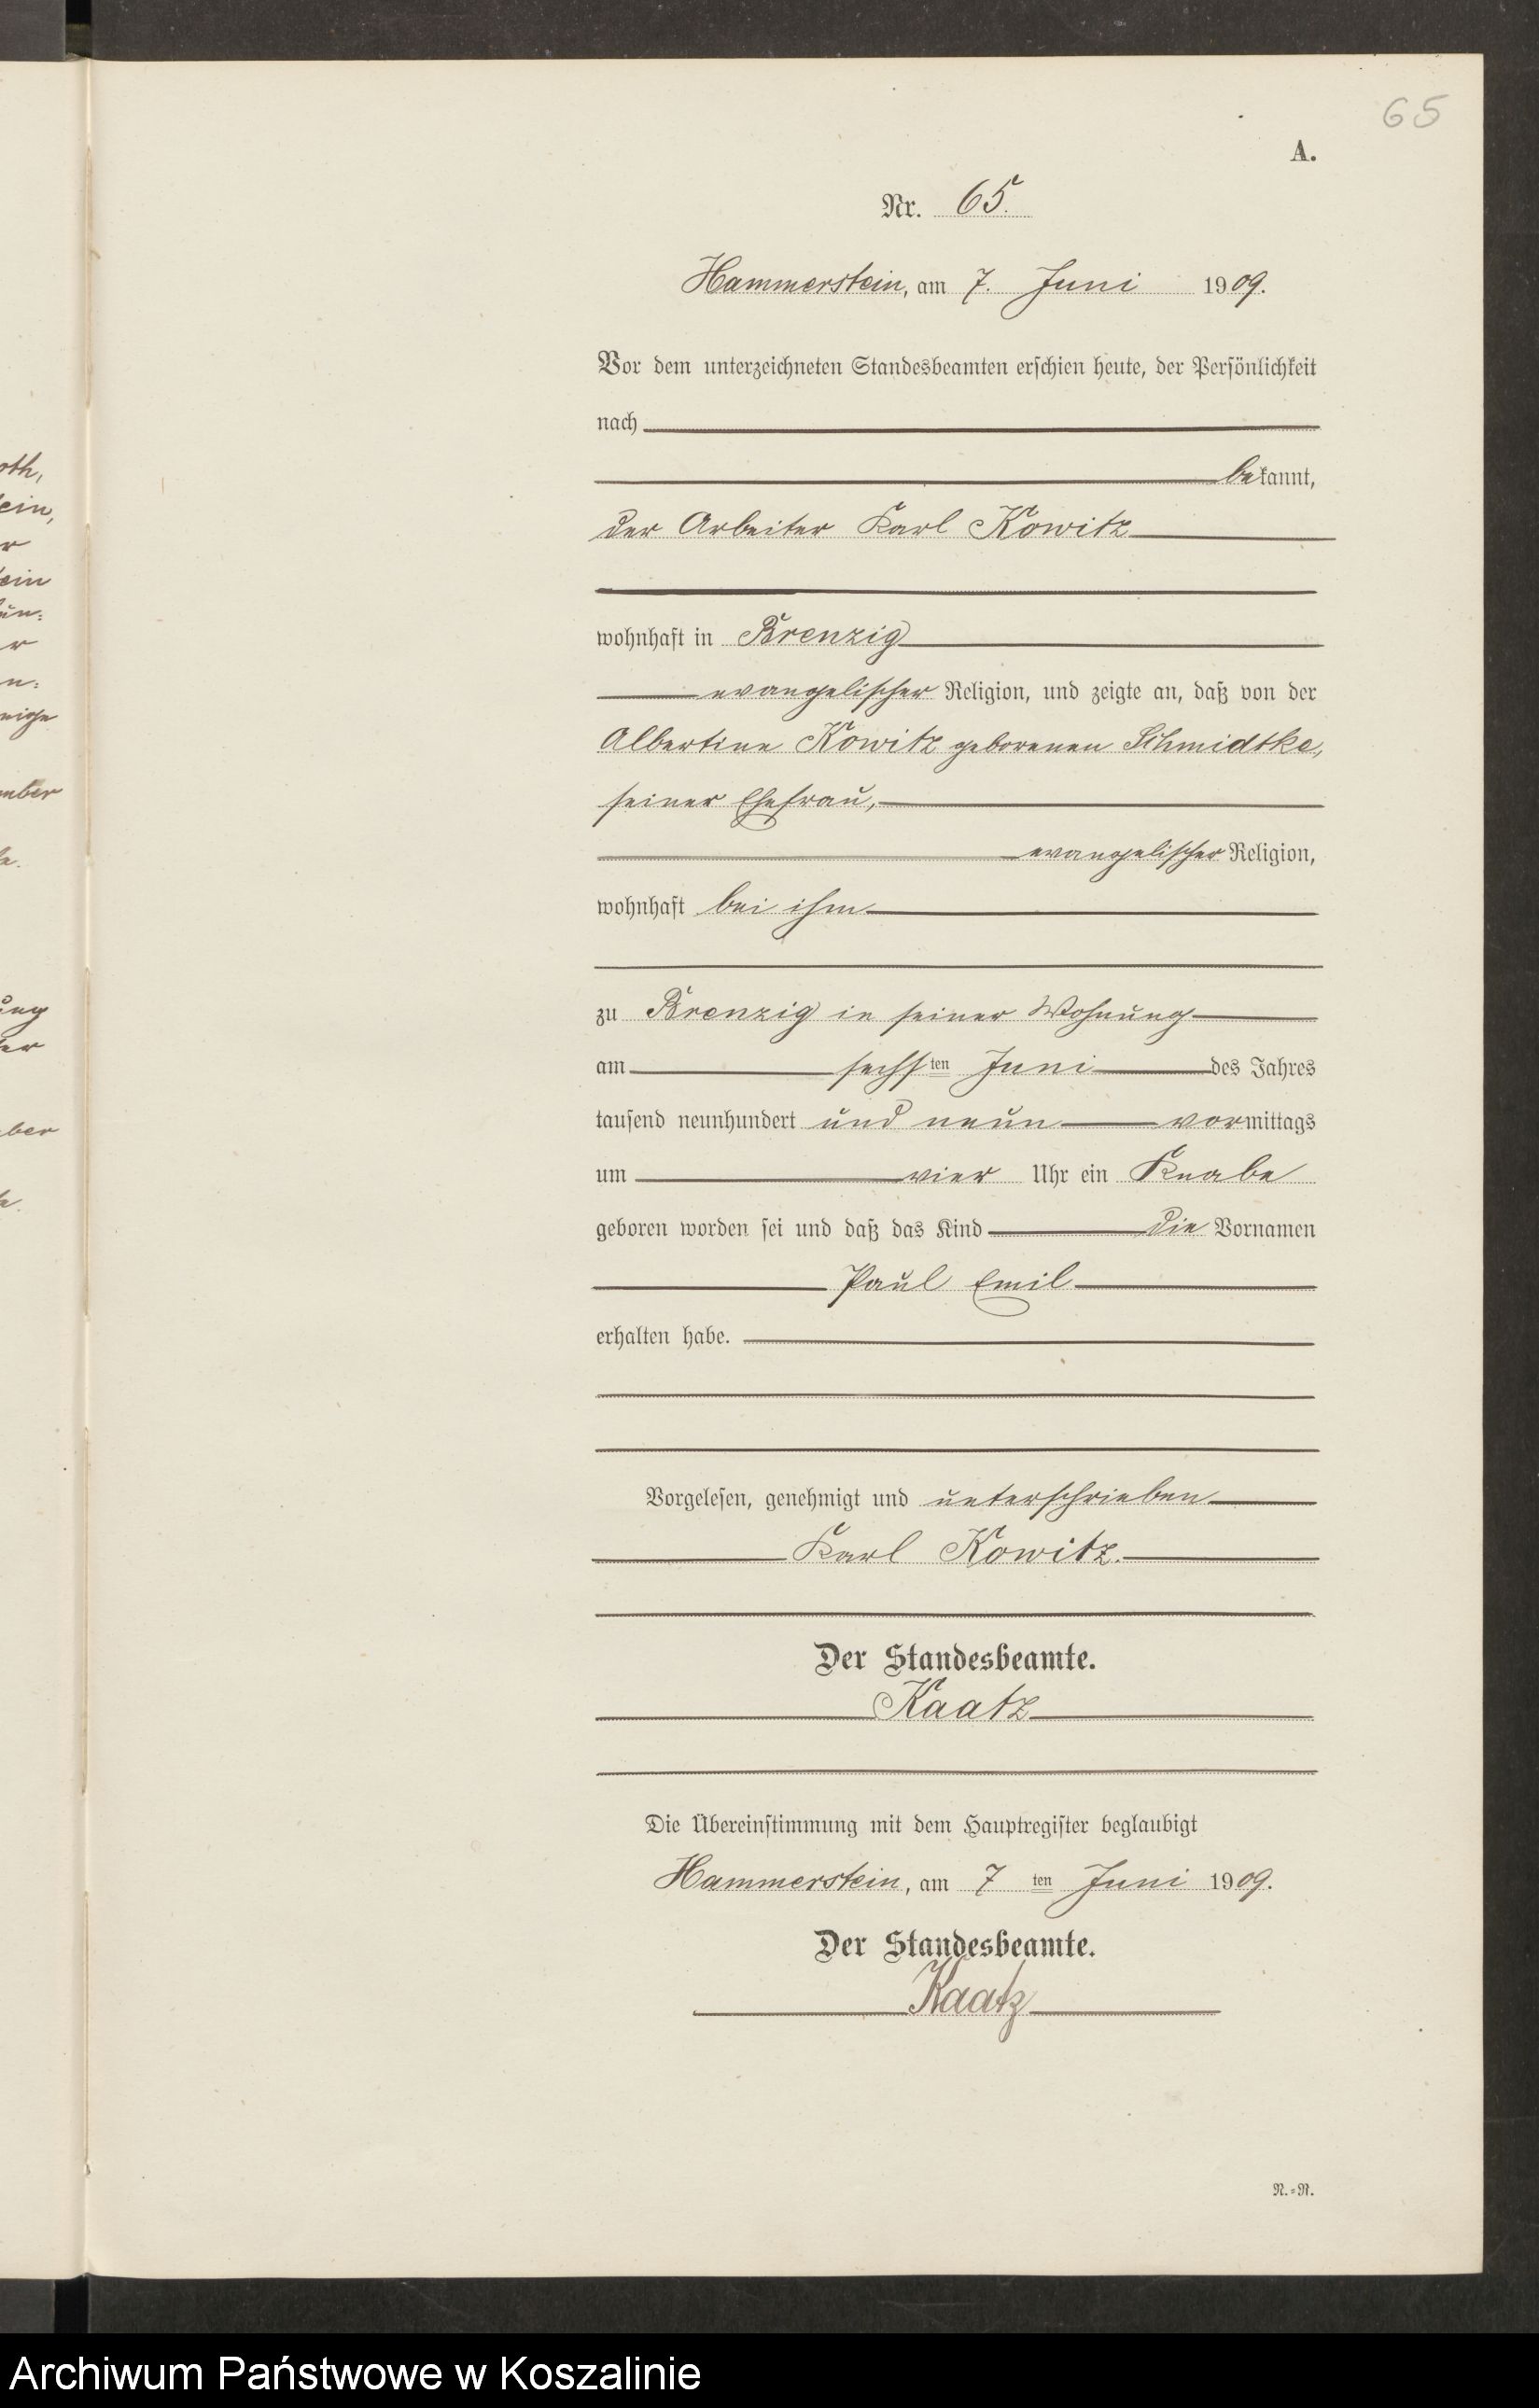 65
A.
Nr. 65.
Hammerstein, am 7. Juni 1909.
Vor dem unterzeichneten Standesbeamten erschien heute, der Persönlichkeit
nach
bekannt,
der Arbeiter Karl Kowitz
wohnhaft in Brenzig
evangelischer Religion, und zeigte an, daß von der
Albertine Kowitz geborenen Schmidtke,
seiner Ehefrau,
evangelischer Religion,
wohnhaft bei ihm
zu Brenzig in seiner Wohnung
am sechsten Juni des Jahres
tausend neunhundert und neun vormittags
um vier Uhr ein Knabe
geboren worden sei und daß das Kind die Vornamen
Paul Emil
erhalten habe.
Vorgelesen, genehmigt und unterschrieben
Karl Kowitz.
Der Standesbeamte.
Kaatz
Die Übereinstimmung mit dem Hauptregister beglaubigt
Hammerstein, am 7ten Juni 1909.
Der Standesbeamte.
Kaatz
N.=R.
oth,
ein,
r
ein
ün:
r
n:
mber
ung
er
ber
Archiwum Państwowe w Koszalinie